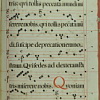 tris qui tollis peccata mundi
miserere nobis. qui tollis peccata
di suscipe deprecationem nos
tram. Qui sedes ad dexteram
tris miserere nobis. Quoniam